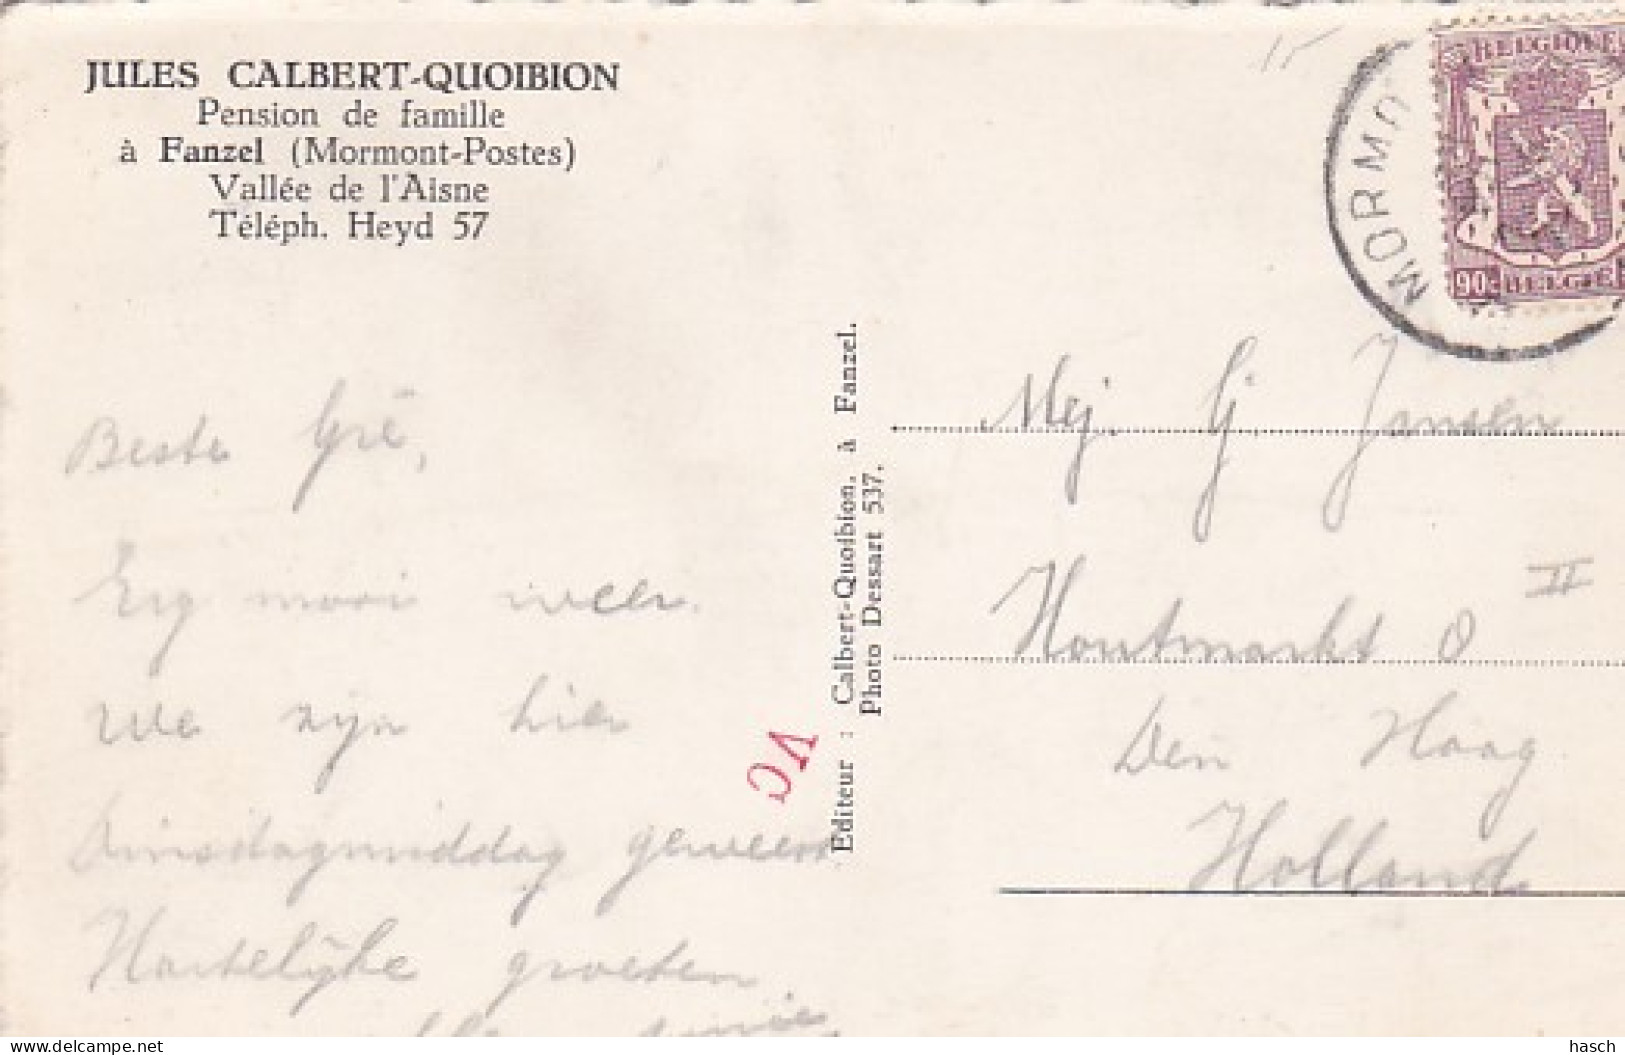 JULES CALBERT-QUOIBION
Pension de famille
à Fanzel (Mormont-Postes)
Vallée de l'Aisne
Téléph. Heyd 57
Beste Gré,
Erg mooi weer.
We zijn hier
Dinsdagmiddag geweest
Hartelijke groeten
Editeur : Calbert-Quoibion, à Fanzel.
Photo Dessart 537.
VC
15
BELGIQUE
90c BELGIE
MORMO
Mej. G. Jansen
Houtmarkt 8 II
Den Haag
Holland
delcampe.net
hasch